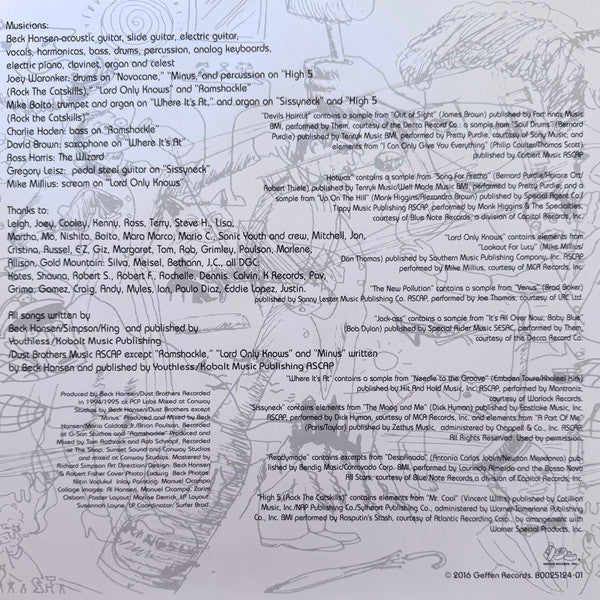 Musicians:
Beck Hansen-acoustic guitar, slide guitar, electric guitar,
vocals, harmonicas, bass, drums, percussion, analog keyboards,
electric piano, clavinet, organ and celest
Joey Waronker: drums on "Novacane," "Minus," and percussion on "High 5
(Rock The Catskills)", "Lord Only Knows" and "Ramshackle"
Mike Boito: trumpet and organ on "Where It's At," and organ on "Sissyneck" and "High 5
(Rock the Catskills)"
Charlie Haden: bass on "Ramshackle"
David Brown: saxophone on "Where It's At"
Ross Harris: The Wizard
Gregory Leisz: pedal steel guitar on "Sissyneck"
Mike Millius: scream on "Lord Only Knows"
Thanks to:
Leigh, Joey, Cooley, Kenny, Ross, Terry, Steve H., Lisa,
Martha, Mo, Nishita, Boito, Mara Marco, Mario C., Sonic Youth and crew, Mitchell, Jon,
Cristina, Russel, EZ, Giz, Margaret, Tom, Rab, Grimley, Paulson, Marlene,
Allison, Gold Mountain: Silva, Meisel, Bethann, J.C., all DGC:
Kates, Shauna, Robert S., Robert F., Rochelle, Dennis, Calvin, K Records, Pav,
Grimo, Gomez, Craig, Andy, Myles, Ian, Paula Diaz, Eddie Lopez, Justin.
All songs written by
Beck Hansen/Simpson/King and published by
Youthless/Kobalt Music Publishing
/Dust Brothers Music ASCAP except "Ramshackle," "Lord Only Knows" and "Minus" written
by Beck Hansen and published by Youthless/Kobalt Music Publishing ASCAP
Produced by Beck Hansen/Dust Brothers Recorded
in 1994/1995 at PCP Labs Mixed at Conway
Studios by Beck Hansen/Dust Brothers except
"Minus" Produced and Mixed by Beck
Hansen/Mario Caldato Jr/Brian Paulson. Recorded
at G-Son Studios and "Ramshackle" Produced and
Mixed by Tom Rothrock and Rob Schnapf. Recorded
at The Shop, Sunset Sound and Conway Studios
and mixed at Conway Studios. Mastered by
Richard Simpson Art Direction/Design: Beck Hansen
& Robert Fisher Cover Photo: Ludwig Beck Photos:
Nitin Vadukul Inlay Painting: Manuel Ocampo
Collage Images: Al Hansen, Manuel Ocampo, Zarim
Osborn: Poster Layout: Marine Derrick, LP Layout:
Susannah Layne, LP Coordinator: Surfer Brod.
"Devils Haircut" contains a sample from "Out of Sight" (James Brown) published by Fort Knox Music
BMI, performed by Them, courtesy of the Decca Record Co.. a sample from "Soul Drums" (Bernard
Purdie) published by Tenryk Music BMI, performed by Pretty Purdie, courtesy of Sony Music, and
elements from "I Can Only Give You Everything" (Philip Coulter/Thomas Scott)
published by Carbert Music ASCAP
"Hotwax" contains a sample from "Song For Aretha" (Bernard Purdie/Horace Ott/
Robert Thiele) published by Tenryk Music/Well Made Music BMI, performed by Pretty Purdie, and a
sample from "Up On The Hill" (Monk Higgins/Alexandra Brown) published by Special Agent Co./
Tippy Music Publishing ASCAP, performed by Monk Higgins & The Specialties,
courtesy of Blue Note Records, a division of Capitol Records, Inc.
"Lord Only Knows" contains elements from
"Lookout For Lucy" (Mike Millius/
Don Thomas) published by Southern Music Publishing Company, Inc. ASCAP
performed by Mike Millius, courtesy of MCA Records. Inc.
"The New Pollution" contains a sample from "Venus" (Brad Baker)
published by Sonny Lester Music Publishing Co. ASCAP, performed by Joe Thomas, courtesy of LRC Ltd.
"Jack-ass" contains a sample from "It's All Over Now, Baby Blue"
(Bob Dylan) published by Special Rider Music SESAC, performed by Them,
courtesy of the Decca Record Co.
"Where It's At" contains a sample from "Needle to the Groove" (Embaden Toure/Khaleel Kirk)
published by Hit And Hold Music Inc. ASCAP, performed by Mantronix,
courtesy of Warlock Records.
Sissyneck" contains a sample from "The Moog and Me" (Dick Hyman) published by Eastlake Music Inc.
ASCAP, performed by Dick Hyman, courtesy of MCA Records, Inc. and elements from "A Part Of Me"
(Paris/Taylor) published by Zethus Music, administered by Chappell & Co., Inc. ASCAP
All Rights Reserved. Used by permission.
"Readymade" contains excerpts from "Desafinado" (Antonio Carlos Jobim/Newton Mendonca) pub-
lished by Bendig Music/Corcovado Corp. BMI, performed by Laurindo Almeida and the Bossa Nova
All Stars, courtesy of Blue Note Records, a division of Capitol Records, Inc.
"High 5 (Rock The Catskills)" contains elements from "Mr. Cool" (Vincent Willis) published by Cotillion
Music, Inc/NAP Publishing Co/Sylheart Publishing Co., administered by Warner-Tamerlane Publishing
Co., Inc. BMI performed by Rasputin's Stash, courtesy of Atlantic Recording Corp. by arrangement with
Warner Special Products, Inc.
GEFFEN RECORDS, INC.
© 2016 Geffen Records. B0025124-01